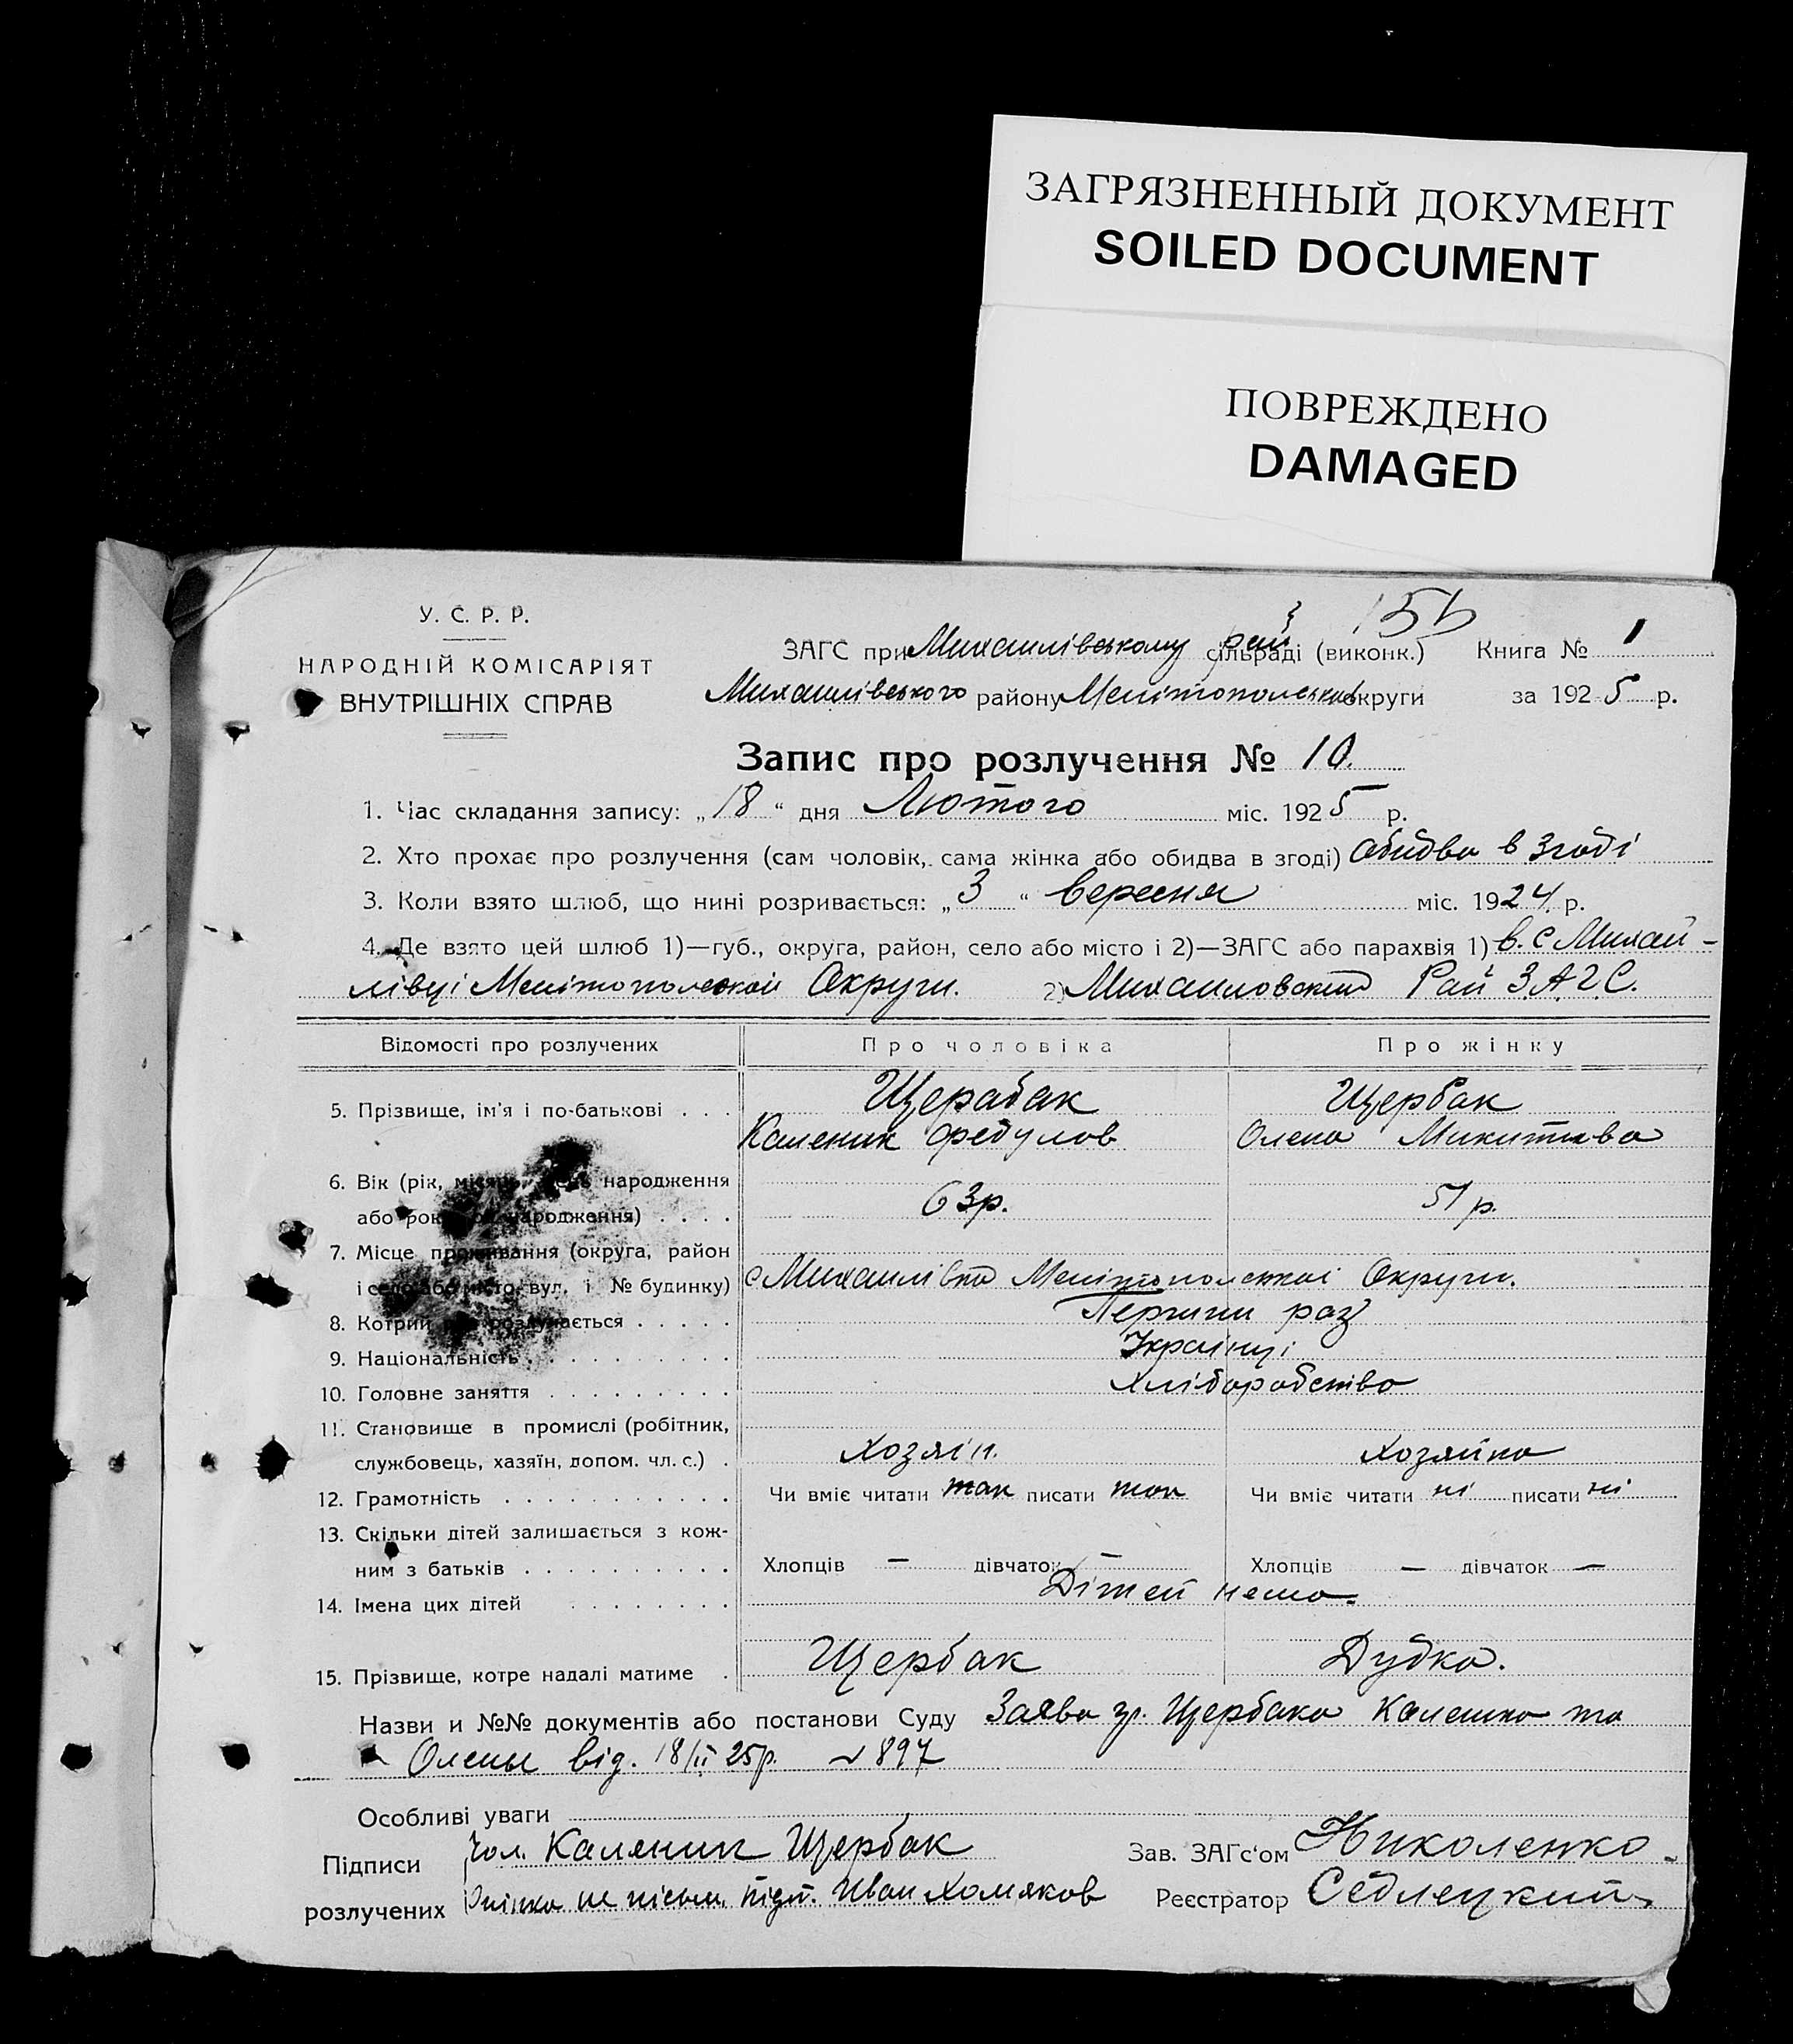 ЗАГРЯЗНЕННЫЙ ДОКУМЕНТ
SOILED DOCUMENT
ПОВРЕЖДЕНО
DAMAGED
У. С. Р. Р.
НАРОДНІЙ КОМІСАРІЯТ
ВНУТРІШНІХ СПРАВ
ЗАГС при Михаилівському рай сільраді (виконк.) Книга № 1
Михаилівського району Мелітопольськ округи за 1925 р.
Запис про розлучення № 10.
1. Час складання запису: „18“ дня Лютого міс. 1925 р.
2. Хто прохає про розлучення (сам чоловік, сама жінка або обидва в згоді) Обидва в згоді
3. Коли взято шлюб, що нині розривається: „3“ вересня міс. 1924 р.
4. Де взято цей шлюб 1)—губ., округа, район, село або місто і 2)—ЗАГС або парахвія 1) в. с Михай-
лівці Мелітопольской Округи. 2) Михаиловский Рай З.А.Г.С.
Відомості про розлучених Про чоловіка Про жінку
5. Прізвище, ім'я і по-батькові . . . Щерабак Щербак
Каленик Федулов Олена Микитова
6. Вік (рік, народження
або рок народження) . . . . 63р. 51 р.
7. Місце проживання (округа, район
і село або місто, вул. і № будинку) с Михаилівка Мелітопольскоі Округи.
8. Котрий розлучається . . . . . Перший раз
9. Національність . . . . . . . . . . Українці
10. Головне заняття . . . . . . . . . Хліборобство
11. Становище в промислі (робітник,
службовець, хазяїн, допом. чл. с.) . Хозяін. Хозяйка
12. Грамотність . . . . . . . . . . . Чи вміє читати так писати так Чи вміє читати ні писати ні
13. Скільки дітей залишається з кож-
ним з батьків . . . . . . . . . . Хлопців — дівчаток — Хлопців — дівчаток —
14. Імена цих дітей . . . . . . . . Дітей нема.
15. Прізвище, котре надалі матиме . Щербак Дубка.
Назви и №№ документів або постанови Суду Заява гр. Щербака Каленика та
Олены від. 18/II 25р. № 897
Особливі уваги
Підписи Чол. Каленик Щербак Зав. ЗАГс'ом Николенко
розлучених не пісьм. підп. Иван Хомяков Реєстратор Седлецкий